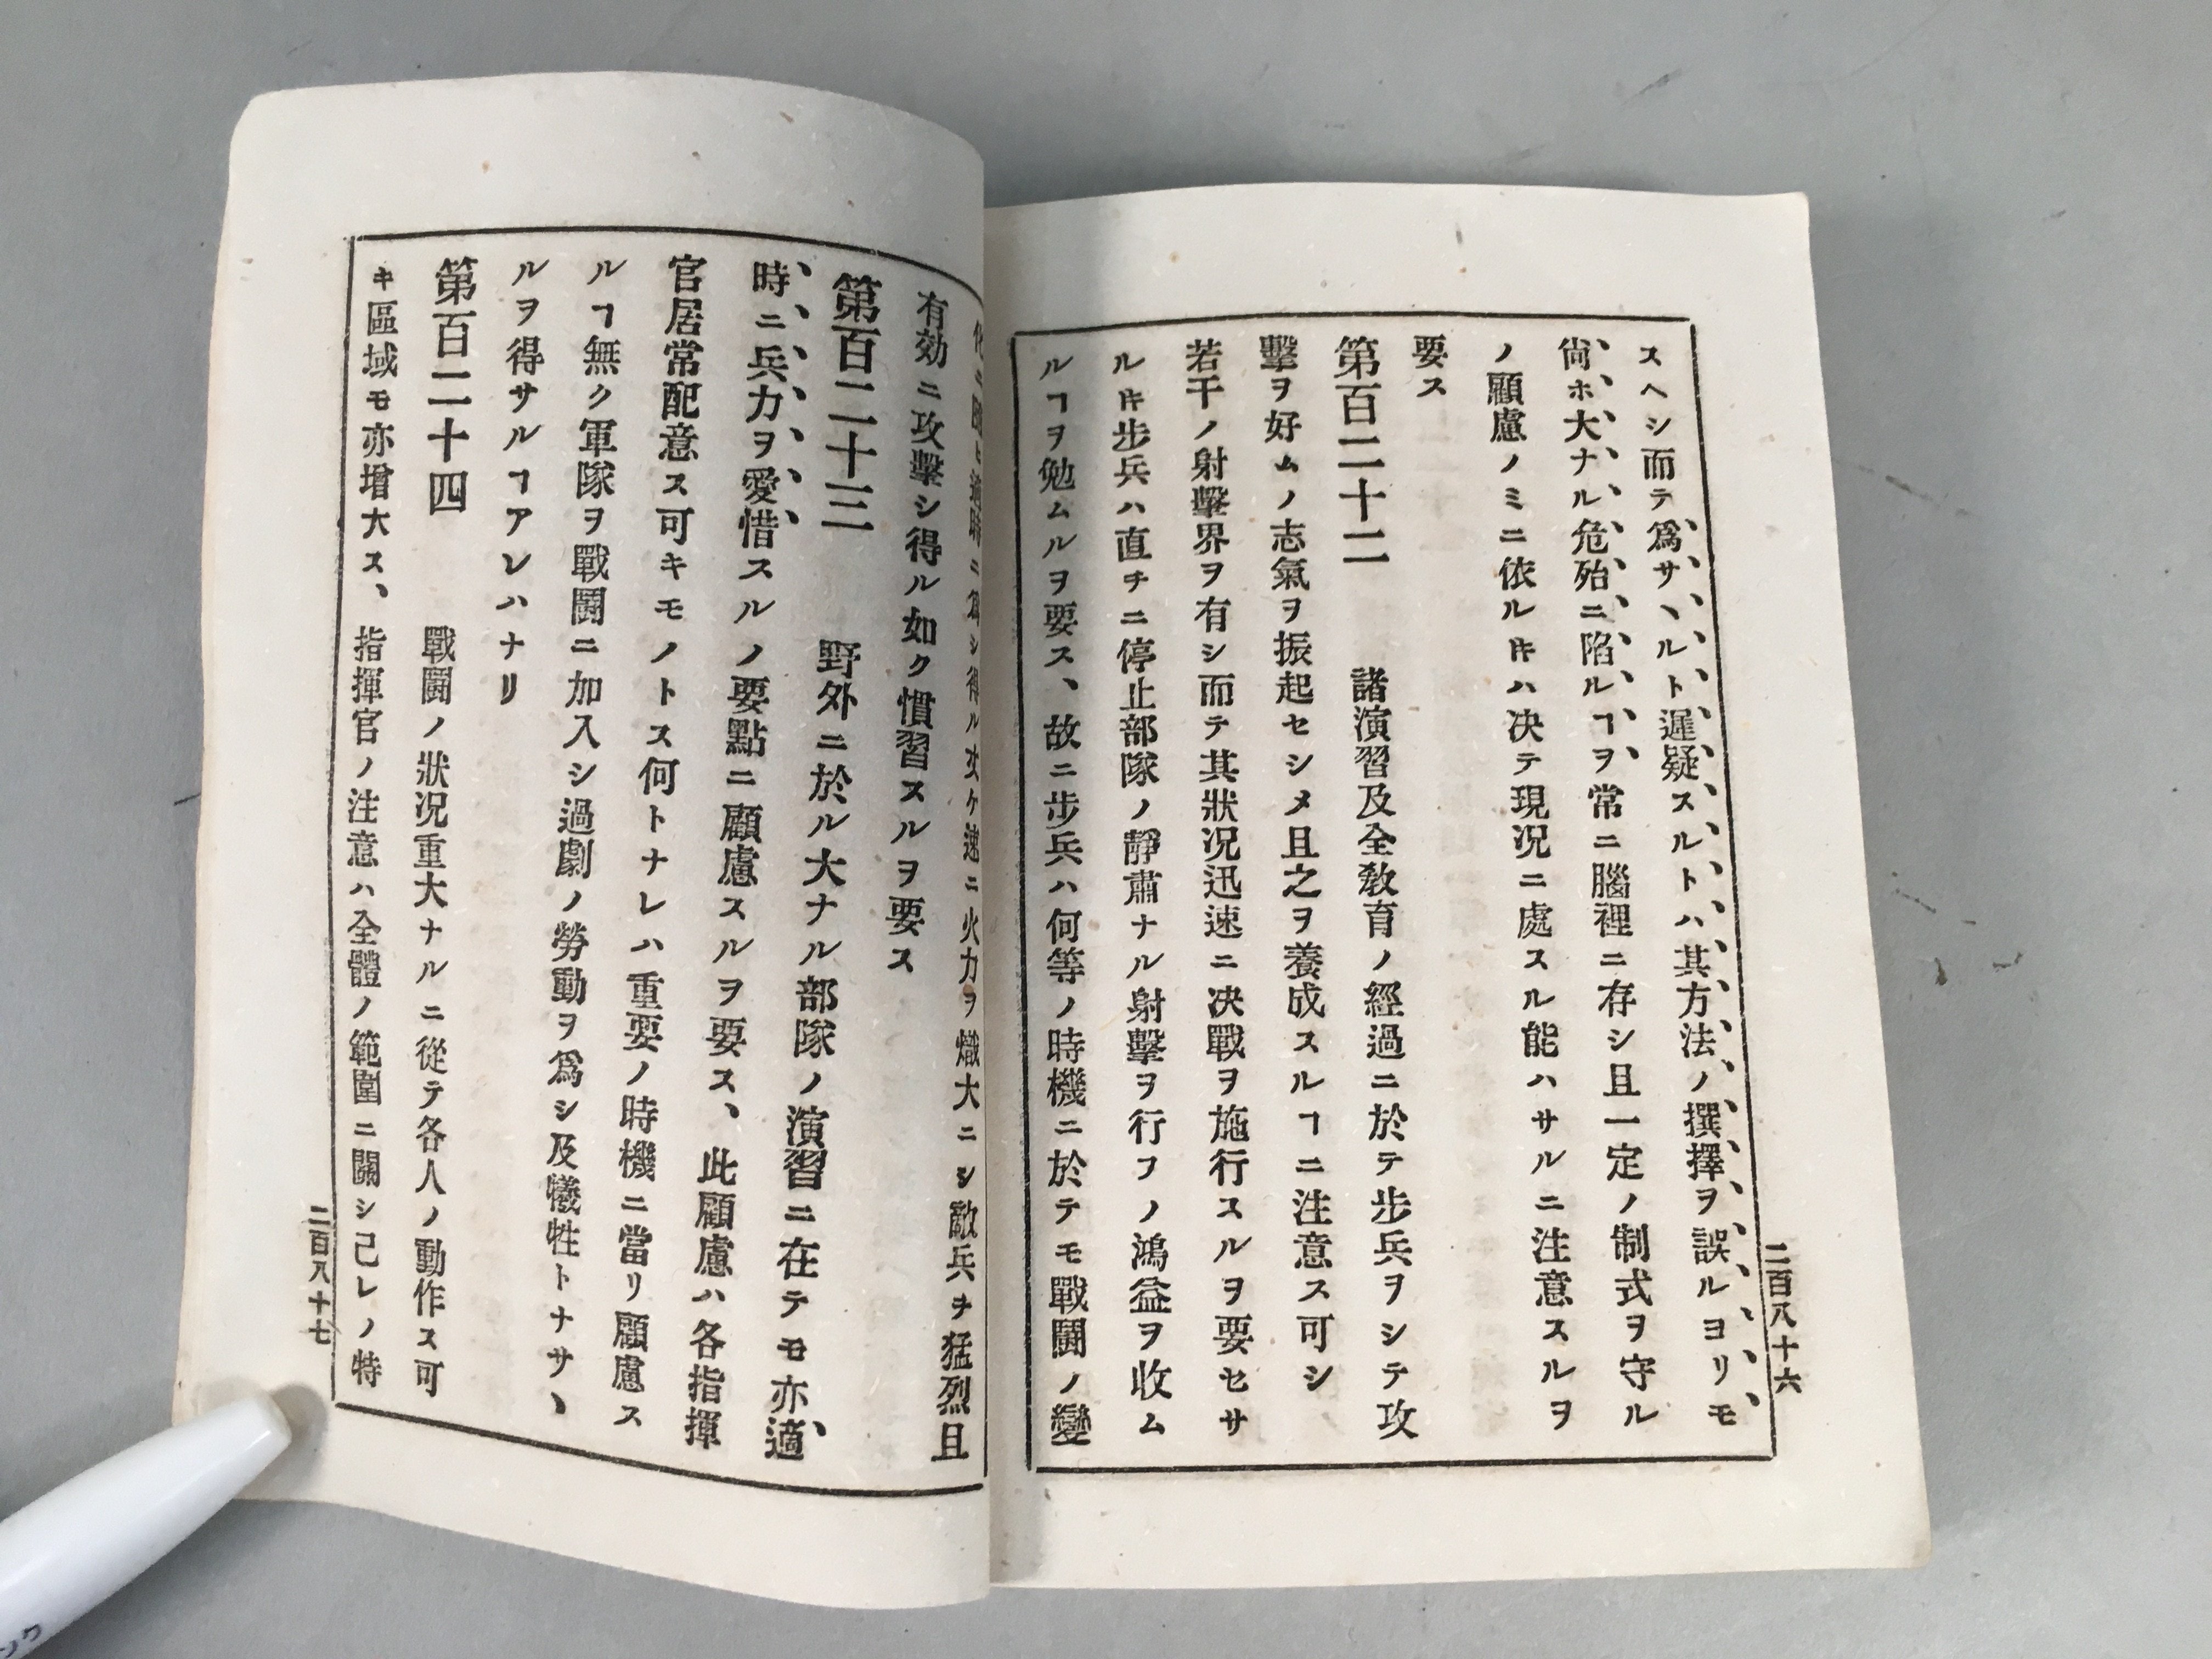 スヘシ而テ爲サヽルト遲疑スルトハ其方法ノ撰擇ヲ誤ルヨリモ
尙ホ大ナル危殆ニ陷ルヿヲ常ニ腦裡ニ存シ且一定ノ制式ヲ守ル
ノ顧慮ノミニ依ルㇳキハ决テ現况ニ處スル能ハサルニ注意スルヲ
要ス
第百二十二 諸演習及全敎育ノ經過ニ於テ步兵ヲシテ攻
擊ヲ好ムノ志氣ヲ振起セシメ且之ヲ養成スルヿニ注意ス可シ
若干ノ射擊界ヲ有シ而テ其狀况迅速ニ决戰ヲ施行スルヲ要セサ
ルㇳキ步兵ハ直チニ停止部隊ノ靜肅ナル射擊ヲ行フノ鴻益ヲ收ム
ルヿヲ勉ムルヲ要ス、故ニ步兵ハ何等ノ時機ニ於テモ戰鬪ノ變
二百八十六
シ得ル丈ケ速ニ火力ヲ熾大ニシ敵兵ヲ猛烈且
有効ニ攻擊シ得ル如ク慣習スルヲ要ス
第百二十三 野外ニ於ル大ナル部隊ノ演習ニ在テモ亦適
時ニ兵力ヲ愛惜スルノ要點ニ顧慮スルヲ要ス、此顧慮ハ各指揮
官居常配意ス可キモノトス何トナレハ重要ノ時機ニ當リ顧慮ス
ルヿ無ク軍隊ヲ戰鬪ニ加入シ過劇ノ勞動ヲ爲シ及犧牲トナサヽ
ルヲ得サルヿアレハナリ
第百二十四 戰鬪ノ狀况重大ナルニ從テ各人ノ動作ス可
キ區域モ亦增大ス、指揮官ノ注意ハ全體ノ範圍ニ關シ己レノ特
二百八十七